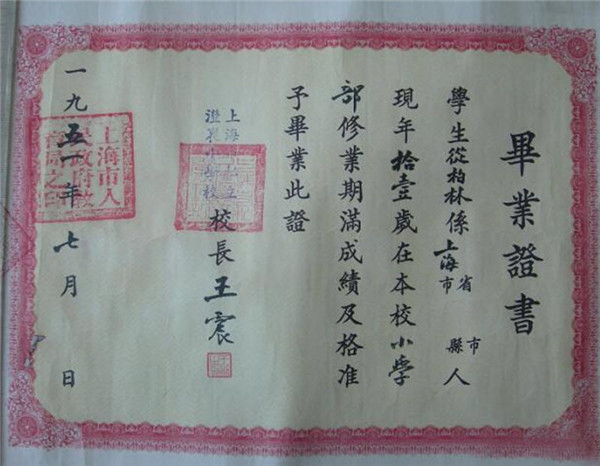 畢業證書
學生從柏林係上海省市 縣市人
現年拾壹歲在本校小學
部修業期滿成績及格准
予畢業此證
校長王震
一九五一年七月 日
上海市人
民政府教
育局之印